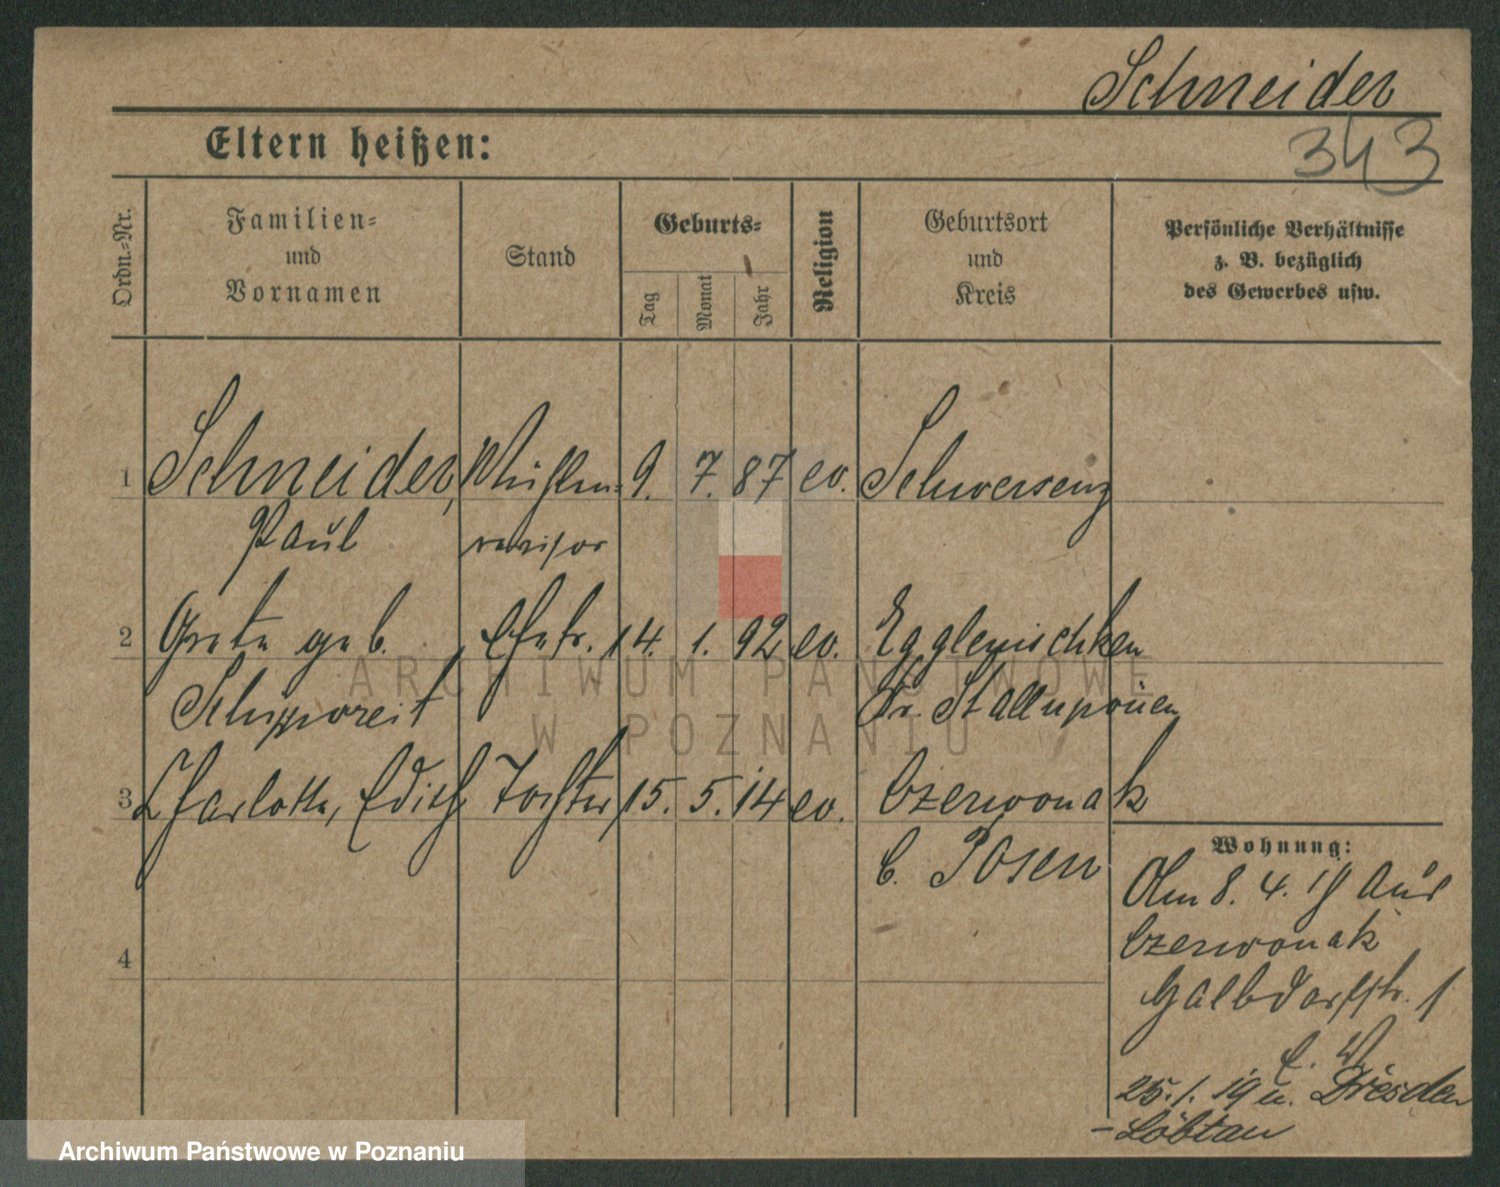 Schneider
343
Eltern heißen:
Ordn.-Nr.
Familien-
und
Vornamen
Stand
Geburts-
Tag
Monat
Jahr
Religion
Geburtsort
und
Kreis
Persönliche Verhältnisse
z. B. bezüglich
des Gewerbes usw.
1 Schneider, Mühlen- 9. 7. 87 ev. Schwersenz
Paul revisor
2 Grete geb. Ehefr. 14. 1. 92 ev. Egglenischken
Schippereit Kr. Stallupönen
3 Charlotte, Edith Tochter 15. 5. 14 ev. Czerwonak
b. Posen
4
Wohnung:
Am 8. 4. aus
Czerwonak
1
25. 1. 19 n. Dresden
-Löbtau
ARCHIWUM PAŃSTWOWE
W POZNANIU
Archiwum Państwowe w Poznaniu